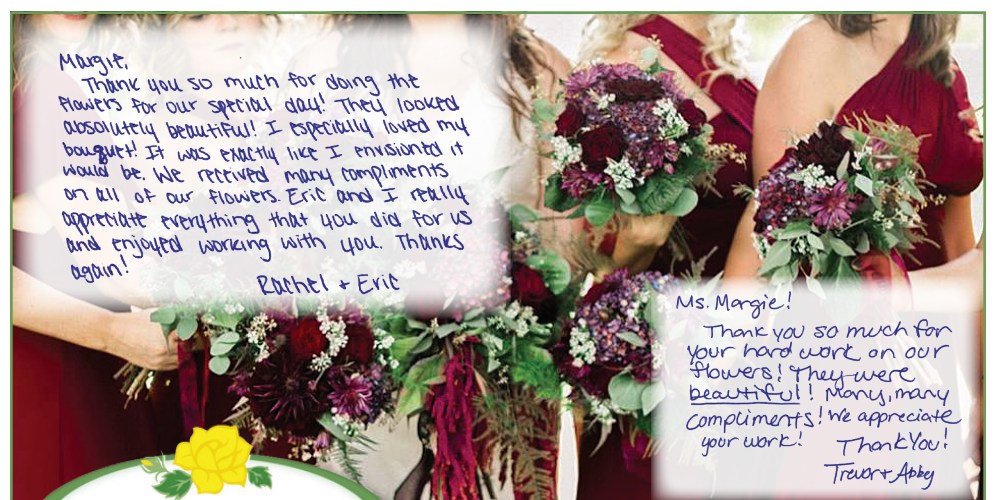 Margie,
Thank you so much for doing the
flowers for our special day! They looked
absolutely beautiful! I especially loved my
bouquet! It was exactly like I envisioned it
would be. We received many compliments
on all of our flowers. Eric and I really
appreciate everything that you did for us
and enjoyed working with you. Thanks
again!
Rachel + Eric
Ms. Margie!
Thank you so much for
your hard work on our
flowers! They were
beautiful! Many, many
compliments! We appreciate
your work!
Thank You!
Trevor + Abbey